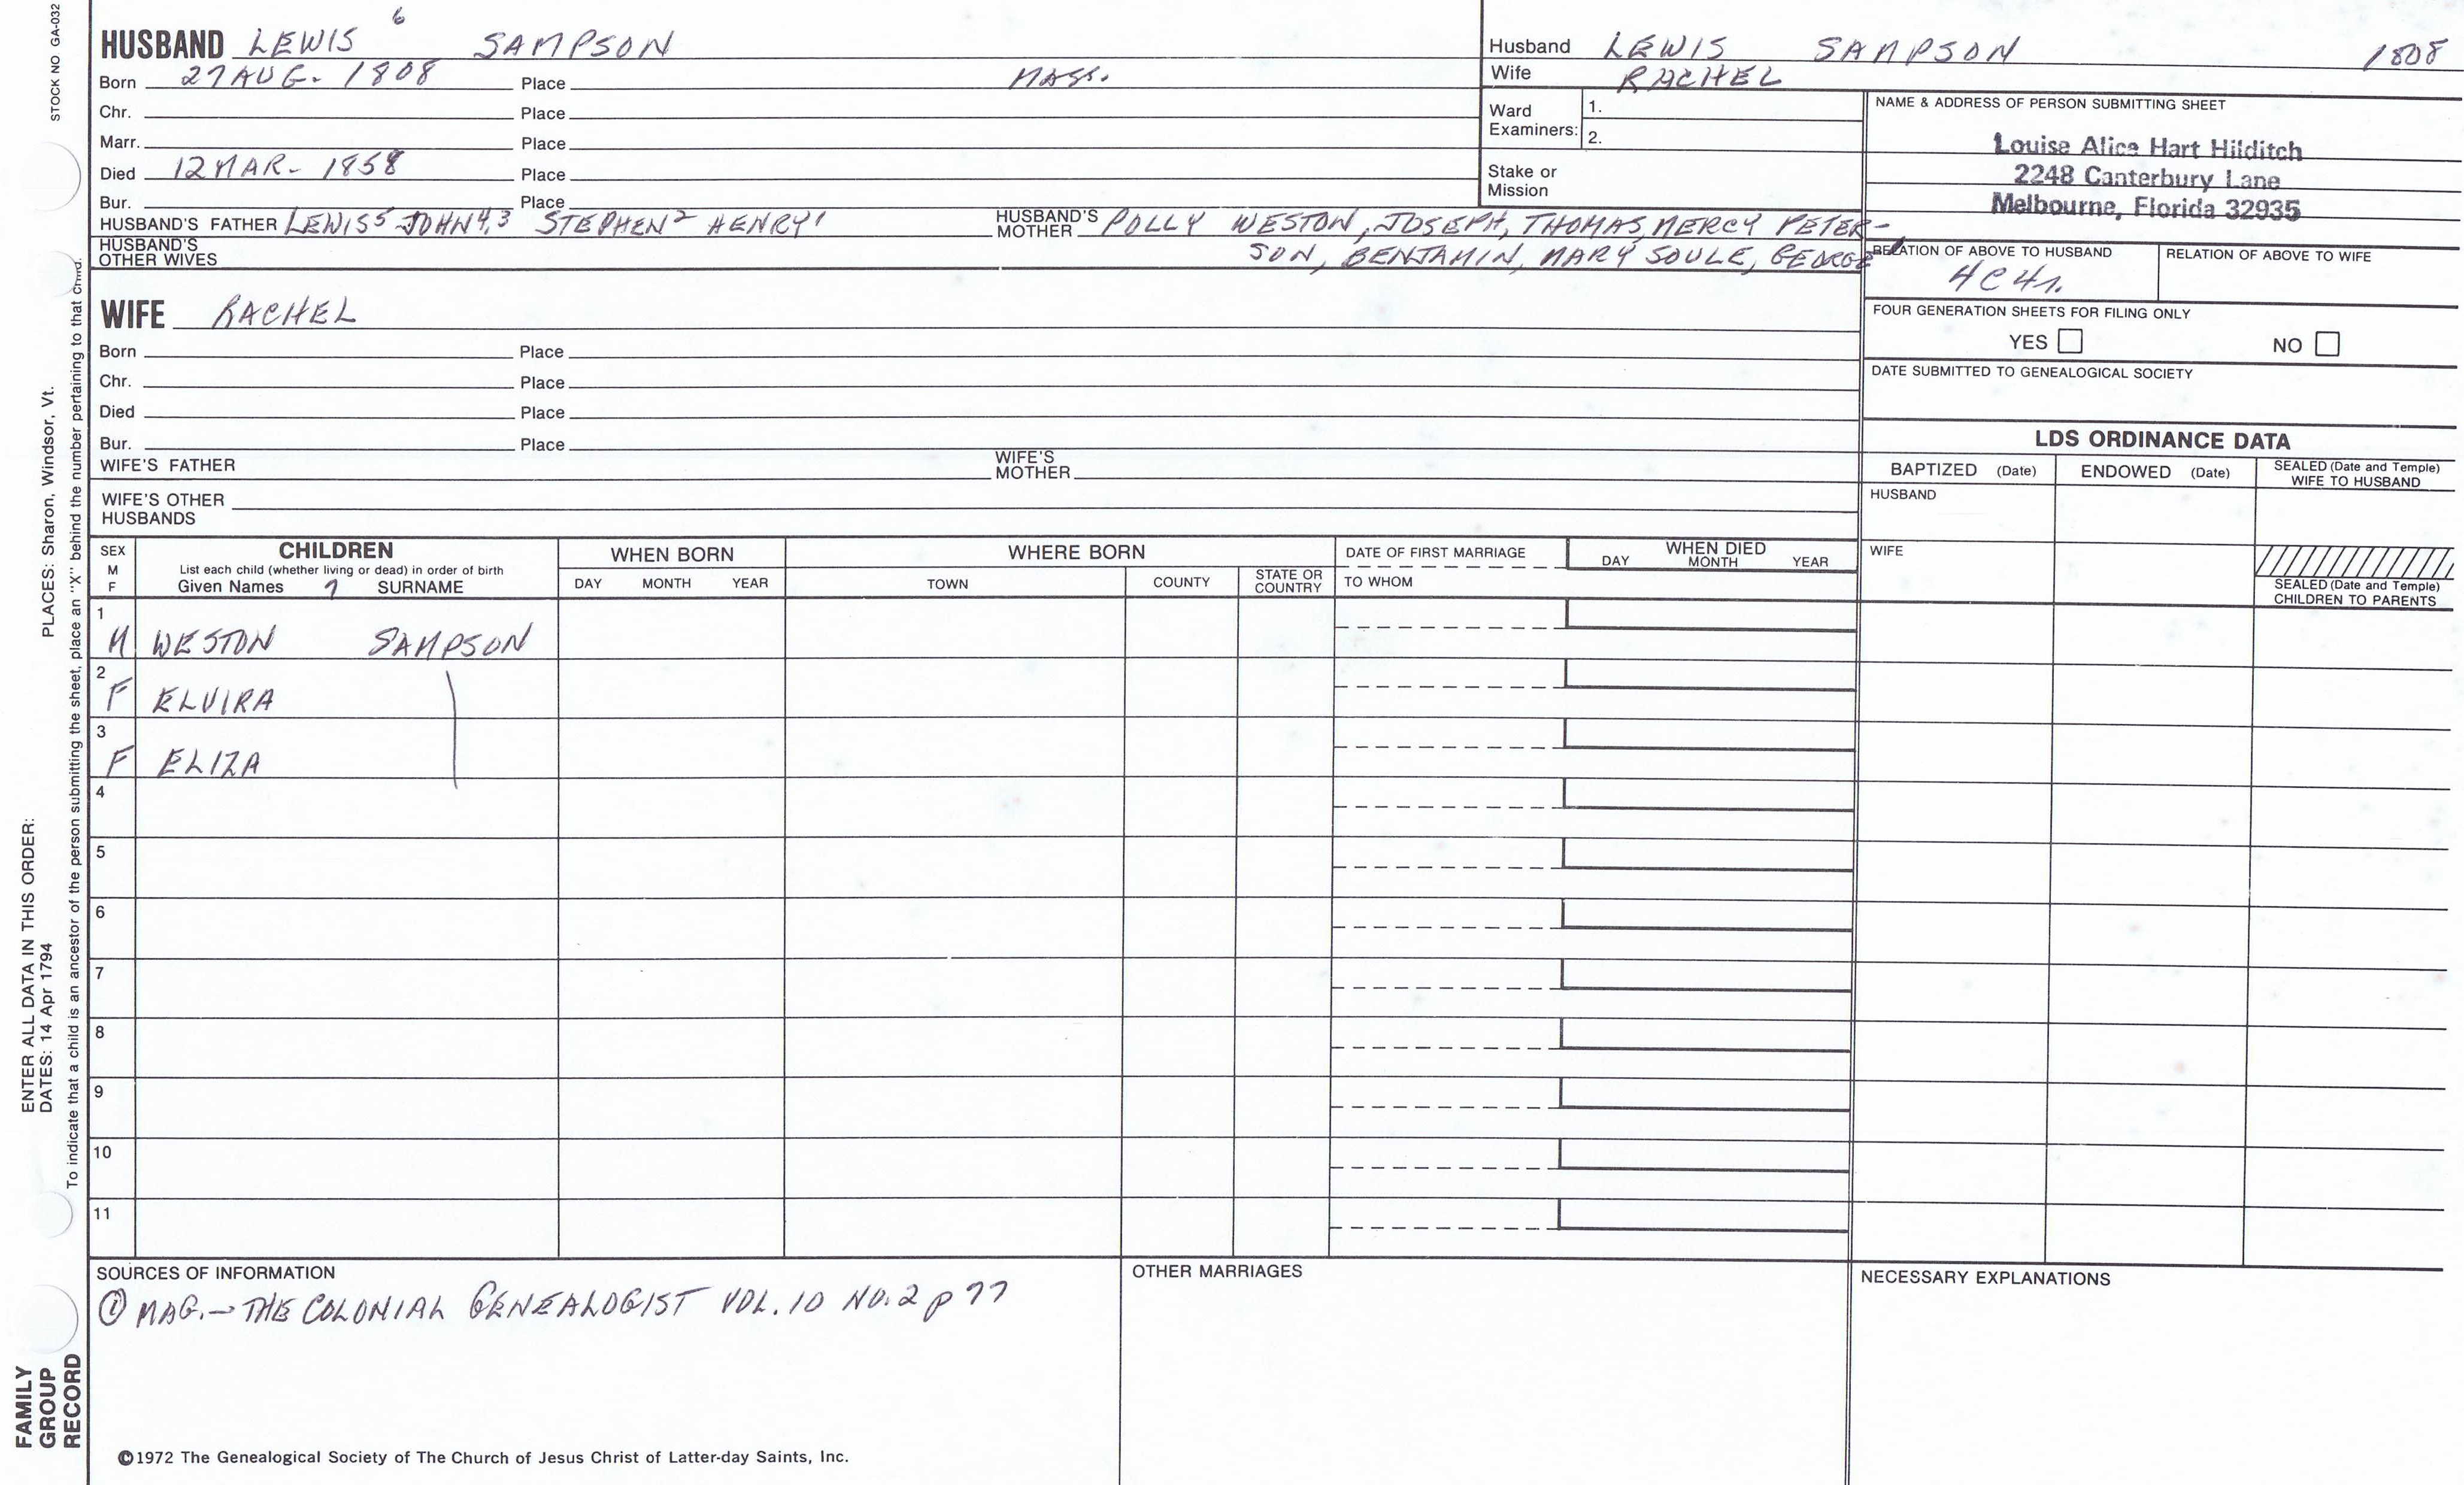 STOCK NO GA-032
6
HUSBAND LEWIS SAMPSON
Born 27 AUG- 1808 Place MASS.
Chr. Place
Marr. Place
Died 12 MAR- 1858 Place
Bur. Place
HUSBAND'S FATHER LEWIS5 JOHN4,3 STEPHEN2 HENRY1 HUSBAND'S MOTHER POLLY WESTON, JOSEPH, THOMAS, MERCY PETER-
HUSBAND'S OTHER WIVES SON, BENJAMIN, MARY SOULE, GEORGE
Husband LEWIS SAMPSON 1808
Wife RACHEL
Ward Examiners: 1.
2.
Stake or Mission
NAME & ADDRESS OF PERSON SUBMITTING SHEET
Louise Alice Hart Hilditch
2248 Canterbury Lane
Melbourne, Florida 32935
RELATION OF ABOVE TO HUSBAND RELATION OF ABOVE TO WIFE
4C4r.
FOUR GENERATION SHEETS FOR FILING ONLY
YES NO
DATE SUBMITTED TO GENEALOGICAL SOCIETY
WIFE RACHEL
Born Place
Chr. Place
Died Place
Bur. Place
WIFE'S FATHER WIFE'S MOTHER
WIFE'S OTHER HUSBANDS
LDS ORDINANCE DATA
BAPTIZED (Date) ENDOWED (Date) SEALED (Date and Temple) WIFE TO HUSBAND
HUSBAND
WIFE
SEALED (Date and Temple) CHILDREN TO PARENTS
SEX M F
CHILDREN
List each child (whether living or dead) in order of birth
Given Names 7 SURNAME
WHEN BORN
DAY MONTH YEAR
WHERE BORN
TOWN COUNTY STATE OR COUNTRY
DATE OF FIRST MARRIAGE
TO WHOM
WHEN DIED
DAY MONTH YEAR
1
M WESTON SAMPSON
2
F ELVIRA
3
F ELIZA
4
5
6
7
8
9
10
11
SOURCES OF INFORMATION
① MAG.- THE COLONIAL GENEALOGIST VOL. 10 NO. 2 p 77
OTHER MARRIAGES
NECESSARY EXPLANATIONS
©1972 The Genealogical Society of The Church of Jesus Christ of Latter-day Saints, Inc.
FAMILY
GROUP
RECORD
ENTER ALL DATA IN THIS ORDER:
DATES: 14 Apr 1794 PLACES: Sharon, Windsor, Vt.
To indicate that a child is an ancestor of the person submitting the sheet, place an "X" behind the number pertaining to that child.